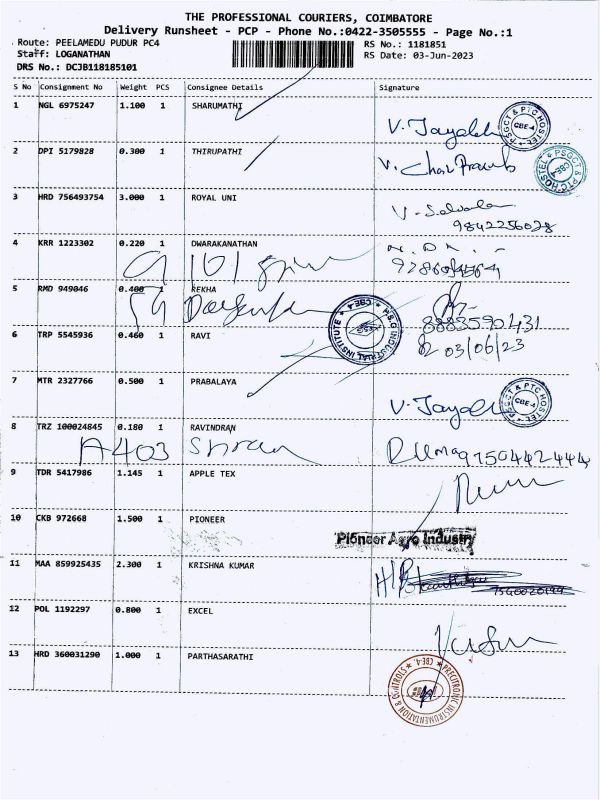 THE PROFESSIONAL COURIERS, COIMBATORE
Delivery Runsheet - PCP - Phone No.:0422-3505555 - Page No.:1
Route: PEELAMEDU PUDUR PC4 RS No.: 1181851
Staff: LOGANATHAN RS Date: 03-Jun-2023
DRS No.: DCJB118185101
S No Consignment No Weight PCS Consignee Details Signature
1 NGL 6975247 1.100 1 SHARUMATHI
V. Jayalek
PSGCT & PTC HOSTEL CBE-4
2 DPI 5179828 0.300 1 THIRUPATHI
V.
PSGCT & PTC HOSTEL CBE-4
3 HRD 756493754 3.000 1 ROYAL UNI
V-
9842256028
4 KRR 1223302 0.220 1 DWARAKANATHAN
5 RMD 949046 0.400 1 REKHA
8883590431
6 TRP 5545936 0.460 1 RAVI
03/06/23
INDUSTRIAL INSTITUTE CBE-4
7 MTR 2327766 0.500 1 PRABALAYA
V. Jayalek
PSGCT & PTC HOSTEL CBE-4
8 TRZ 100024845 0.180 1 RAVINDRAN
A403
9750442444
9 TDR 5417986 1.145 1 APPLE TEX
10 CKB 972668 1.500 1 PIONEER
Pioneer Agro Industry
11 MAA 859925435 2.300 1 KRISHNA KUMAR
12 POL 1192297 0.800 1 EXCEL
13 HRD 360031290 1.000 1 PARTHASARATHI
PRECITRONIC INSTRUMENTATION & CONTROLS CBE-4.